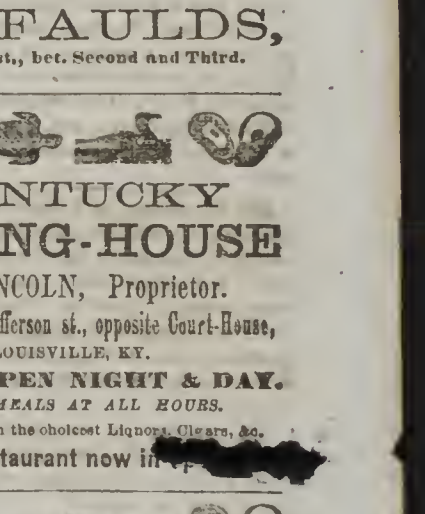 FAULDS,
st., bet. Second and Third.
NTUCKY
NG-HOUSE
NCOLN, Proprietor.
fferson st., opposite Court-House,
LOUISVILLE, KY.
PEN NIGHT & DAY.
MEALS AT ALL HOURS.
h the choicest Liquors, Cigars, &c.
taurant now in